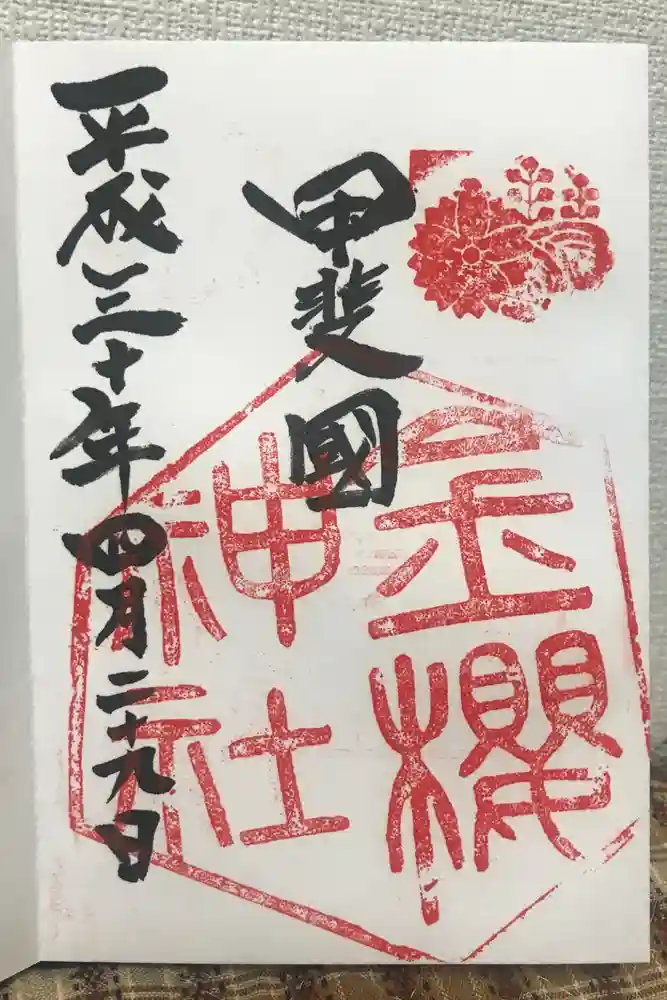 甲斐國
金櫻
神社
平成三十年四月二十九日